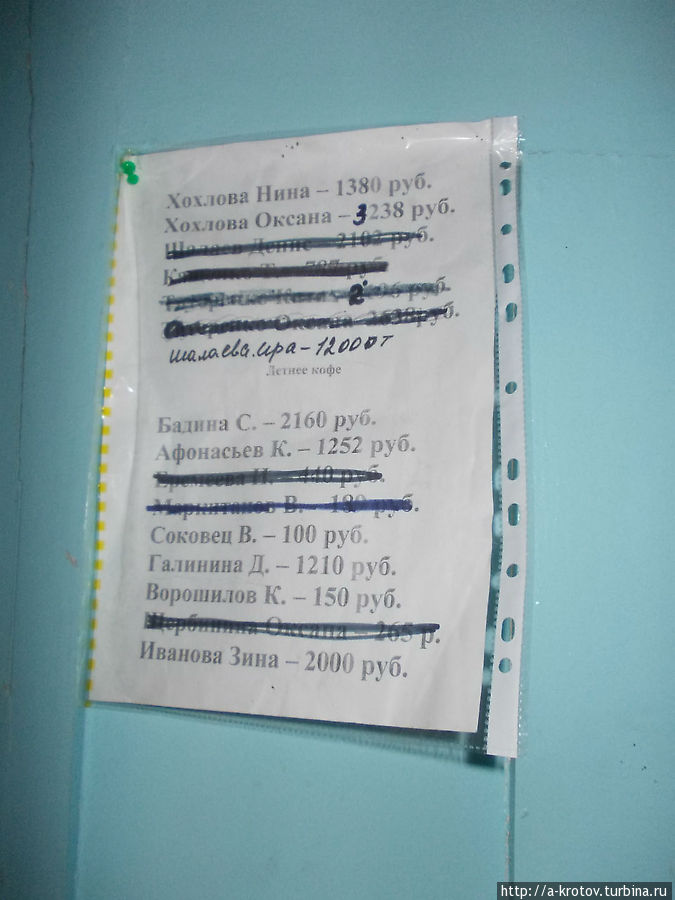 Хохлова Нина – 1380 руб.
Хохлова Оксана – 3238 руб.
Шалаев Денис – 2102 руб.
руб
руб.
Оксана 2638руб.
шалаева.ира – 12000т
Летнее кофе
Бадина С. – 2160 руб.
Афонасьев К. – 1252 руб.
Еремеева Н. – 440 руб.
Маркитанов В. – 180 руб.
Соковец В. – 100 руб.
Галинина Д. – 1210 руб.
Ворошилов К. – 150 руб.
Щербинина Оксана – 265 р.
Иванова Зина – 2000 руб.
http://a-krotov.turbina.ru/